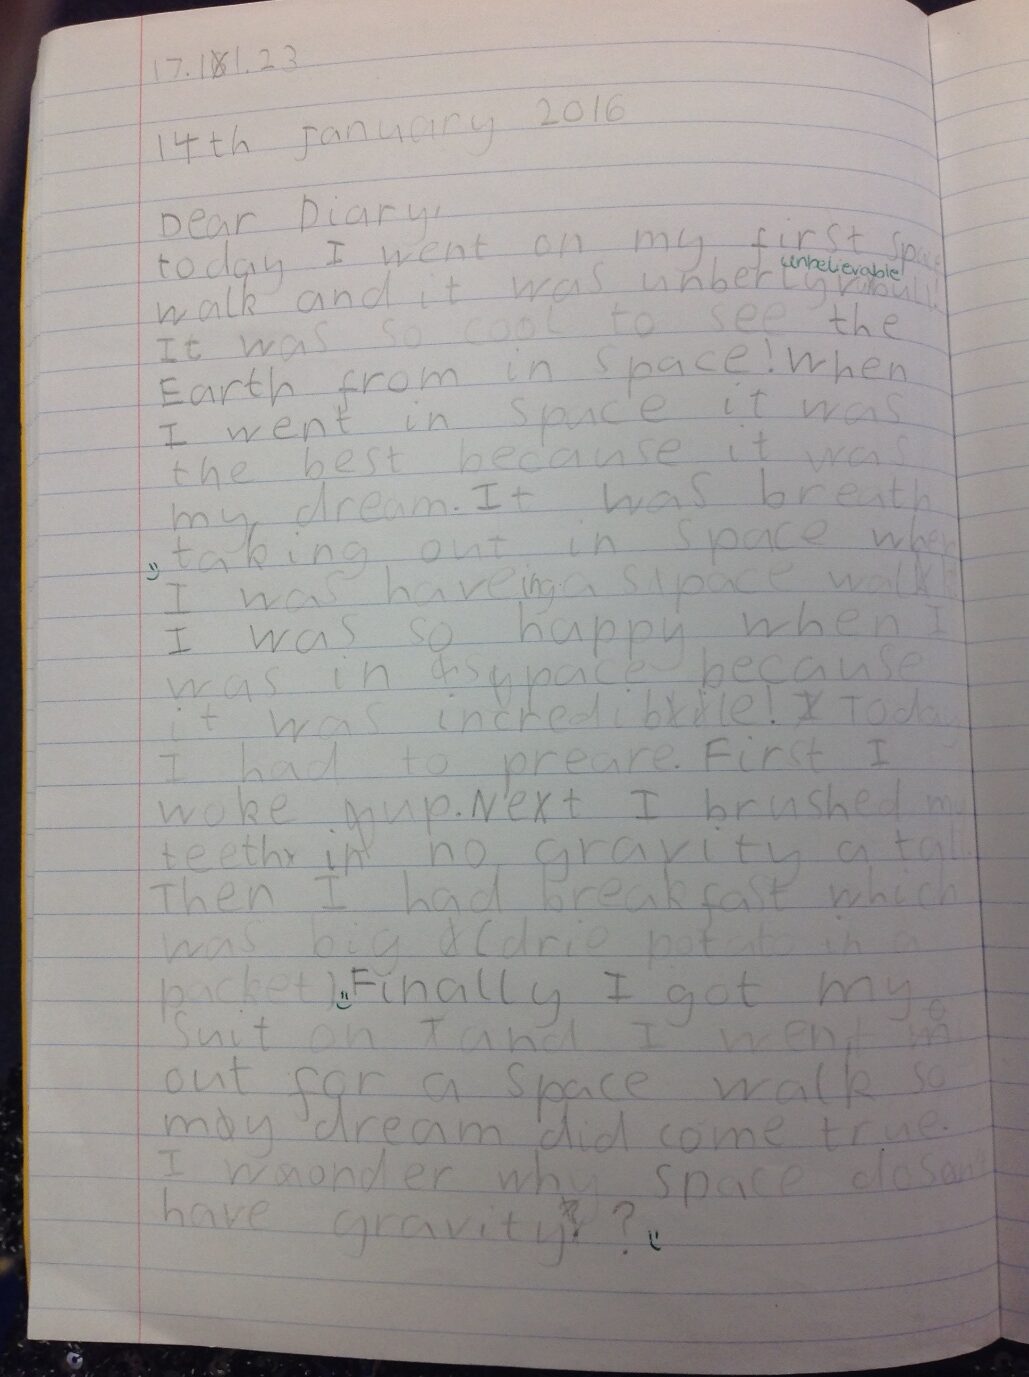 17.11.23
14th January 2016
Dear Diary,
today I went on my first space
unbelievable
walk and it was
It was so cool to see the
Earth from in space! When
I went in space it was
the best because it was
my dream. It was breath
taking out in space when
I was haveing a space walk
I was so happy when I
was in space because
it was incredible! Today
I had to preare. First I
woke up. Next I brushed my
teeth in no gravity a tal
Then I had breakfast which
was big (drie potato in a
packet). Finally I got my
suit on and I went
out for a space walk so
my dream did come true.
I wonder why space dosan't
have gravity??